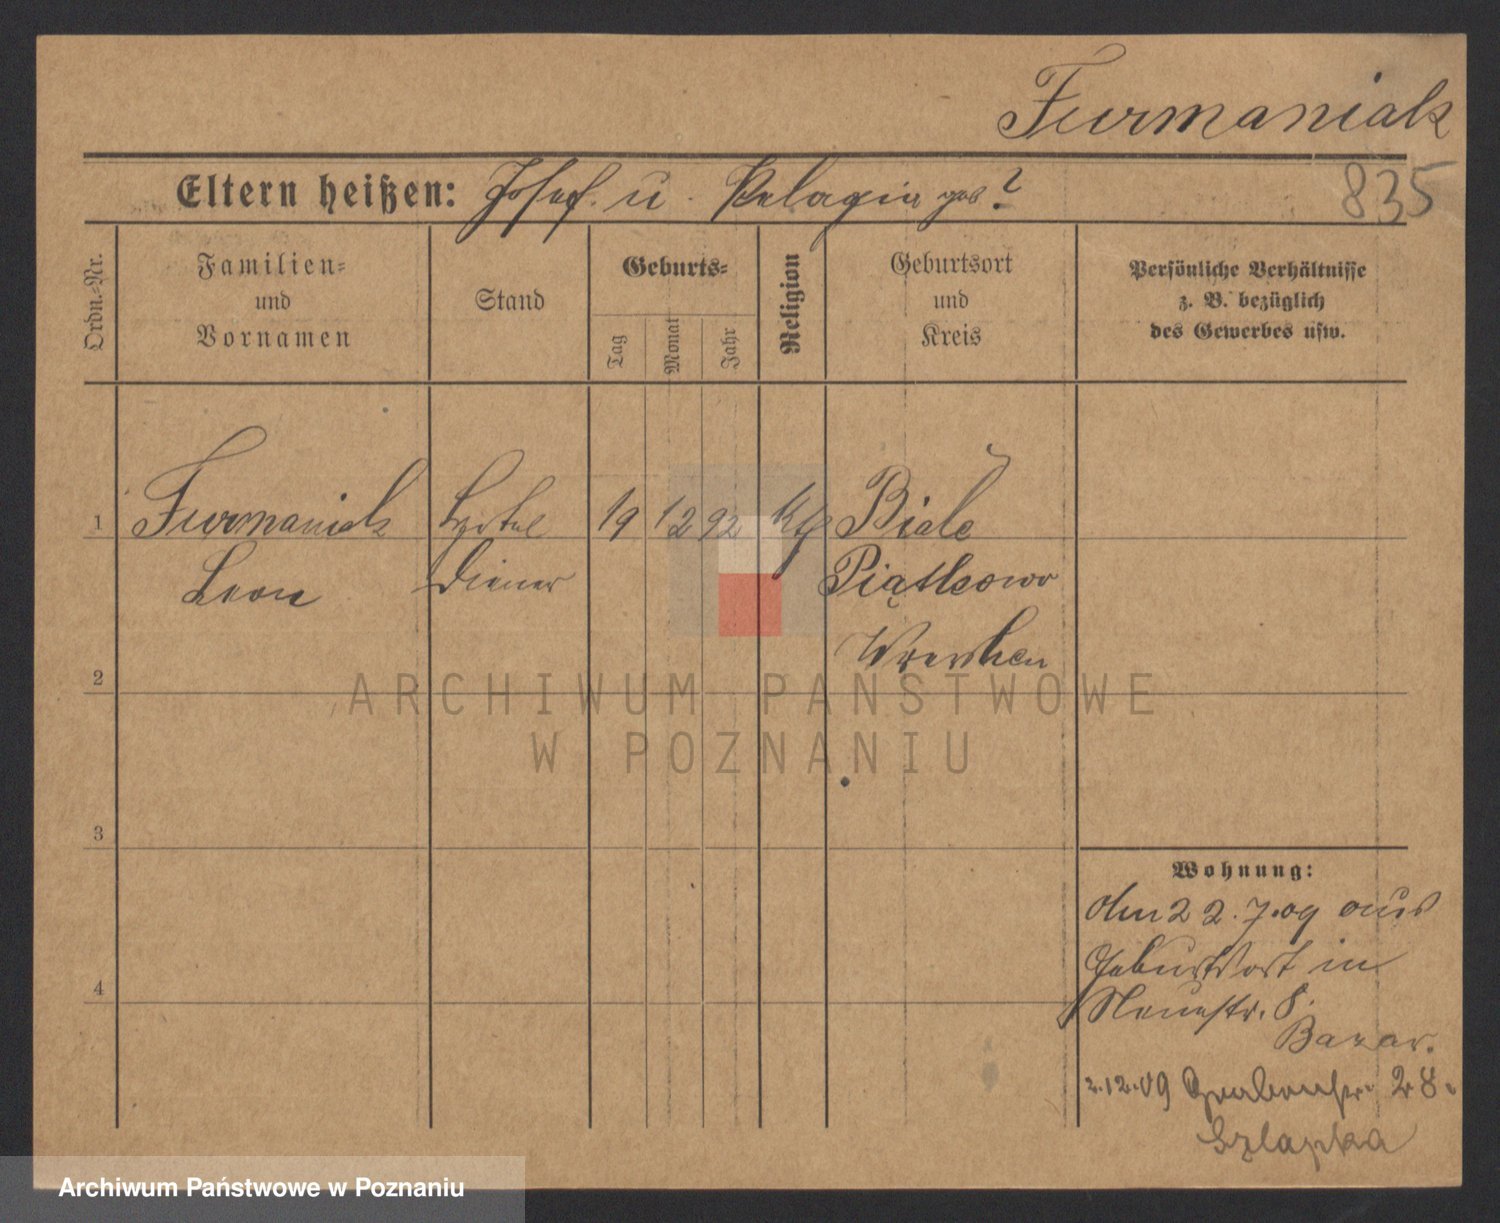 Furmaniak
835
Eltern heißen: Josef. u. Pelagia geb ?
Ordn.-Nr.
Familien-
und
Vornamen
Stand
Geburts-
Tag
Monat
Jahr
Religion
Geburtsort
und
Kreis
Persönliche Verhältnisse
z. B. bezüglich
des Gewerbes usw.
1 Furmaniak Hotel 19 12 92 kth Biale
Leon Diener Piątkowo
Wreschen
2
ARCHIWUM PAŃSTWOWE
W POZNANIU
3
Wohnung:
Am 22.7.09 aus
Geburtsort in
4
Neuestr. 8.
Bazar.
2.12.09 Grabenstr. 28.
Szlapka
Archiwum Państwowe w Poznaniu